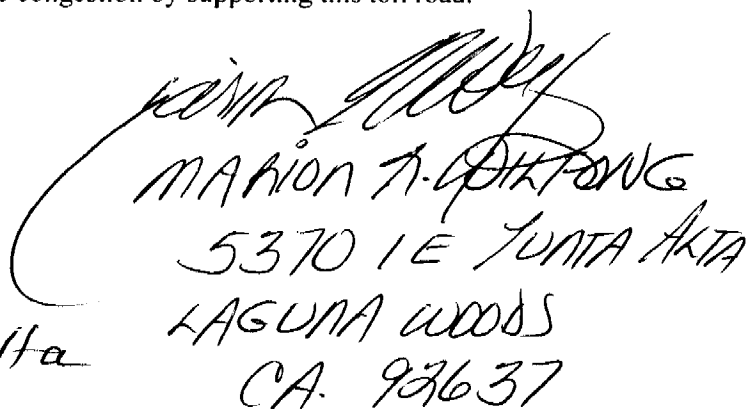 congestion by supporting this toll road.
MARION R. WILFONG
5370 1E YUNTA ALTA
LAGUNA WOODS
lta
CA. 92637